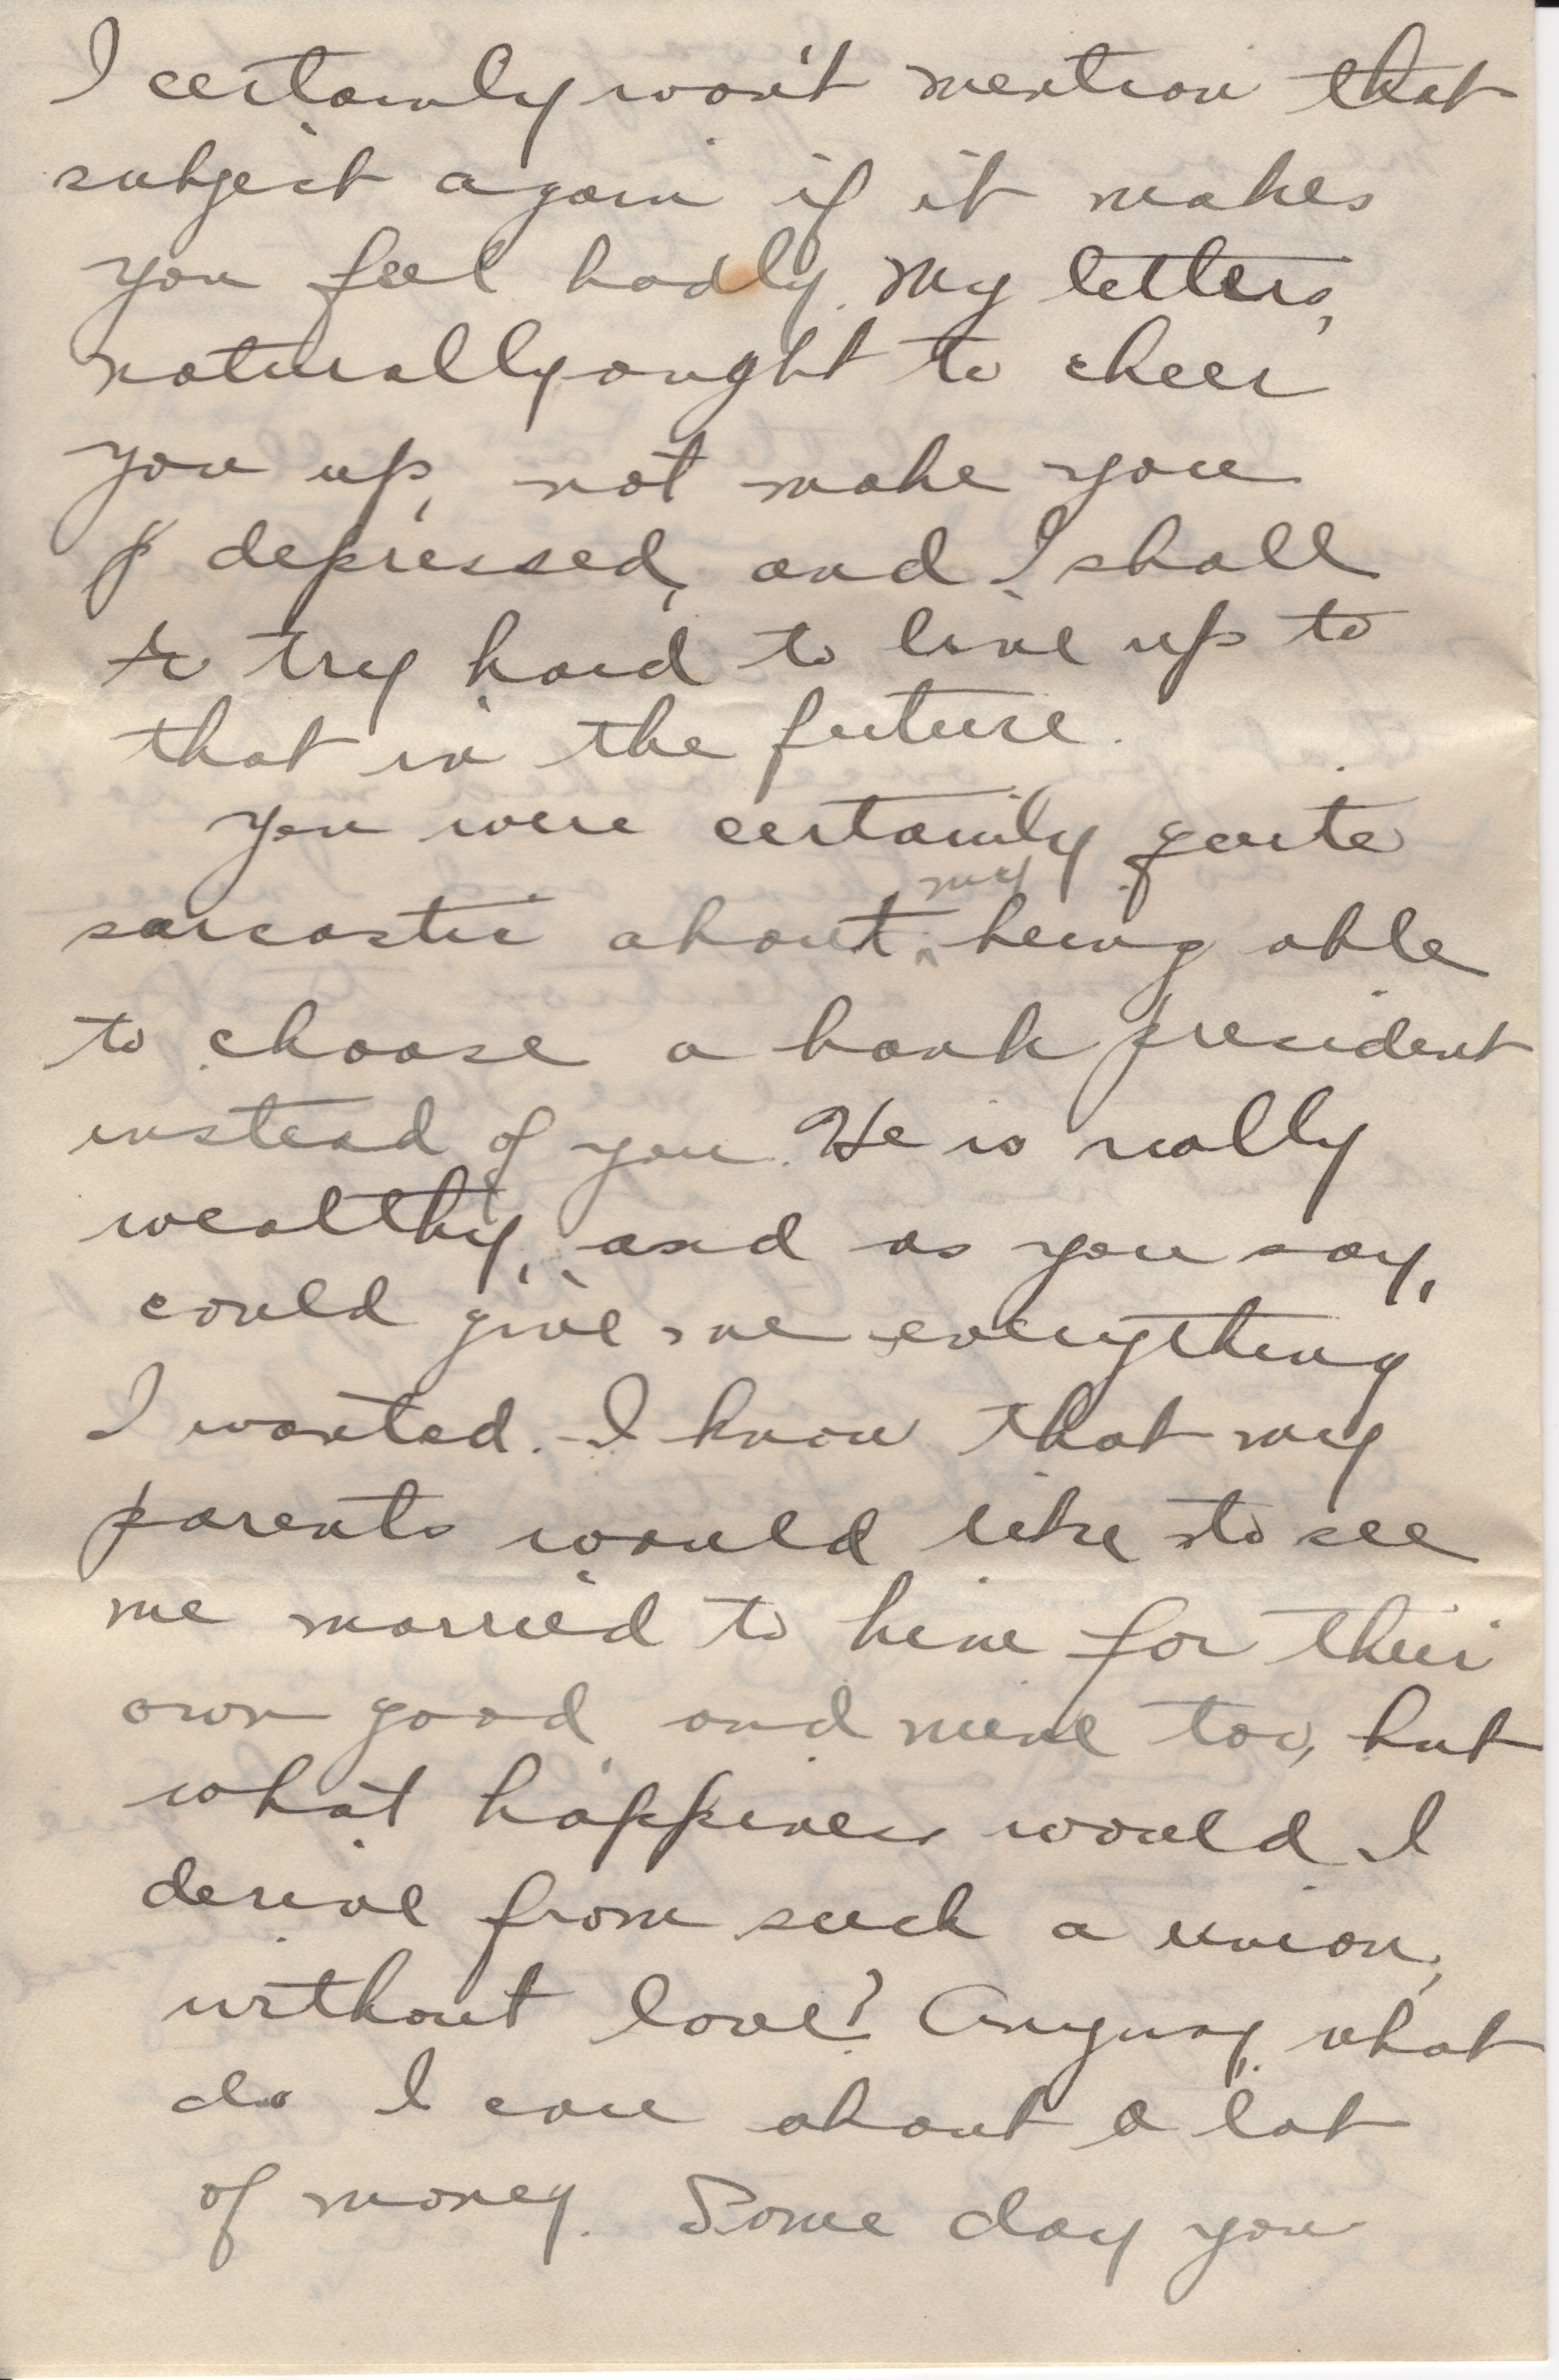 I certainly won't mention that
subject again if it makes
you feel badly. My letters,
naturally ought to cheer
you up, not make you
depressed, and I shall
to try hard to live up to
that in the future.
You were certainly quite
sarcastic about my being able
to choose a bank president
instead of you. He is really
wealthy, and as you say,
could give me everything
I wanted. I know that my
parents would like to see
me married to him for their
own good, and mine too, but
what happiness would I
derive from such a union,
without love? Anyway, what
do I care about a lot
of money. Some day you